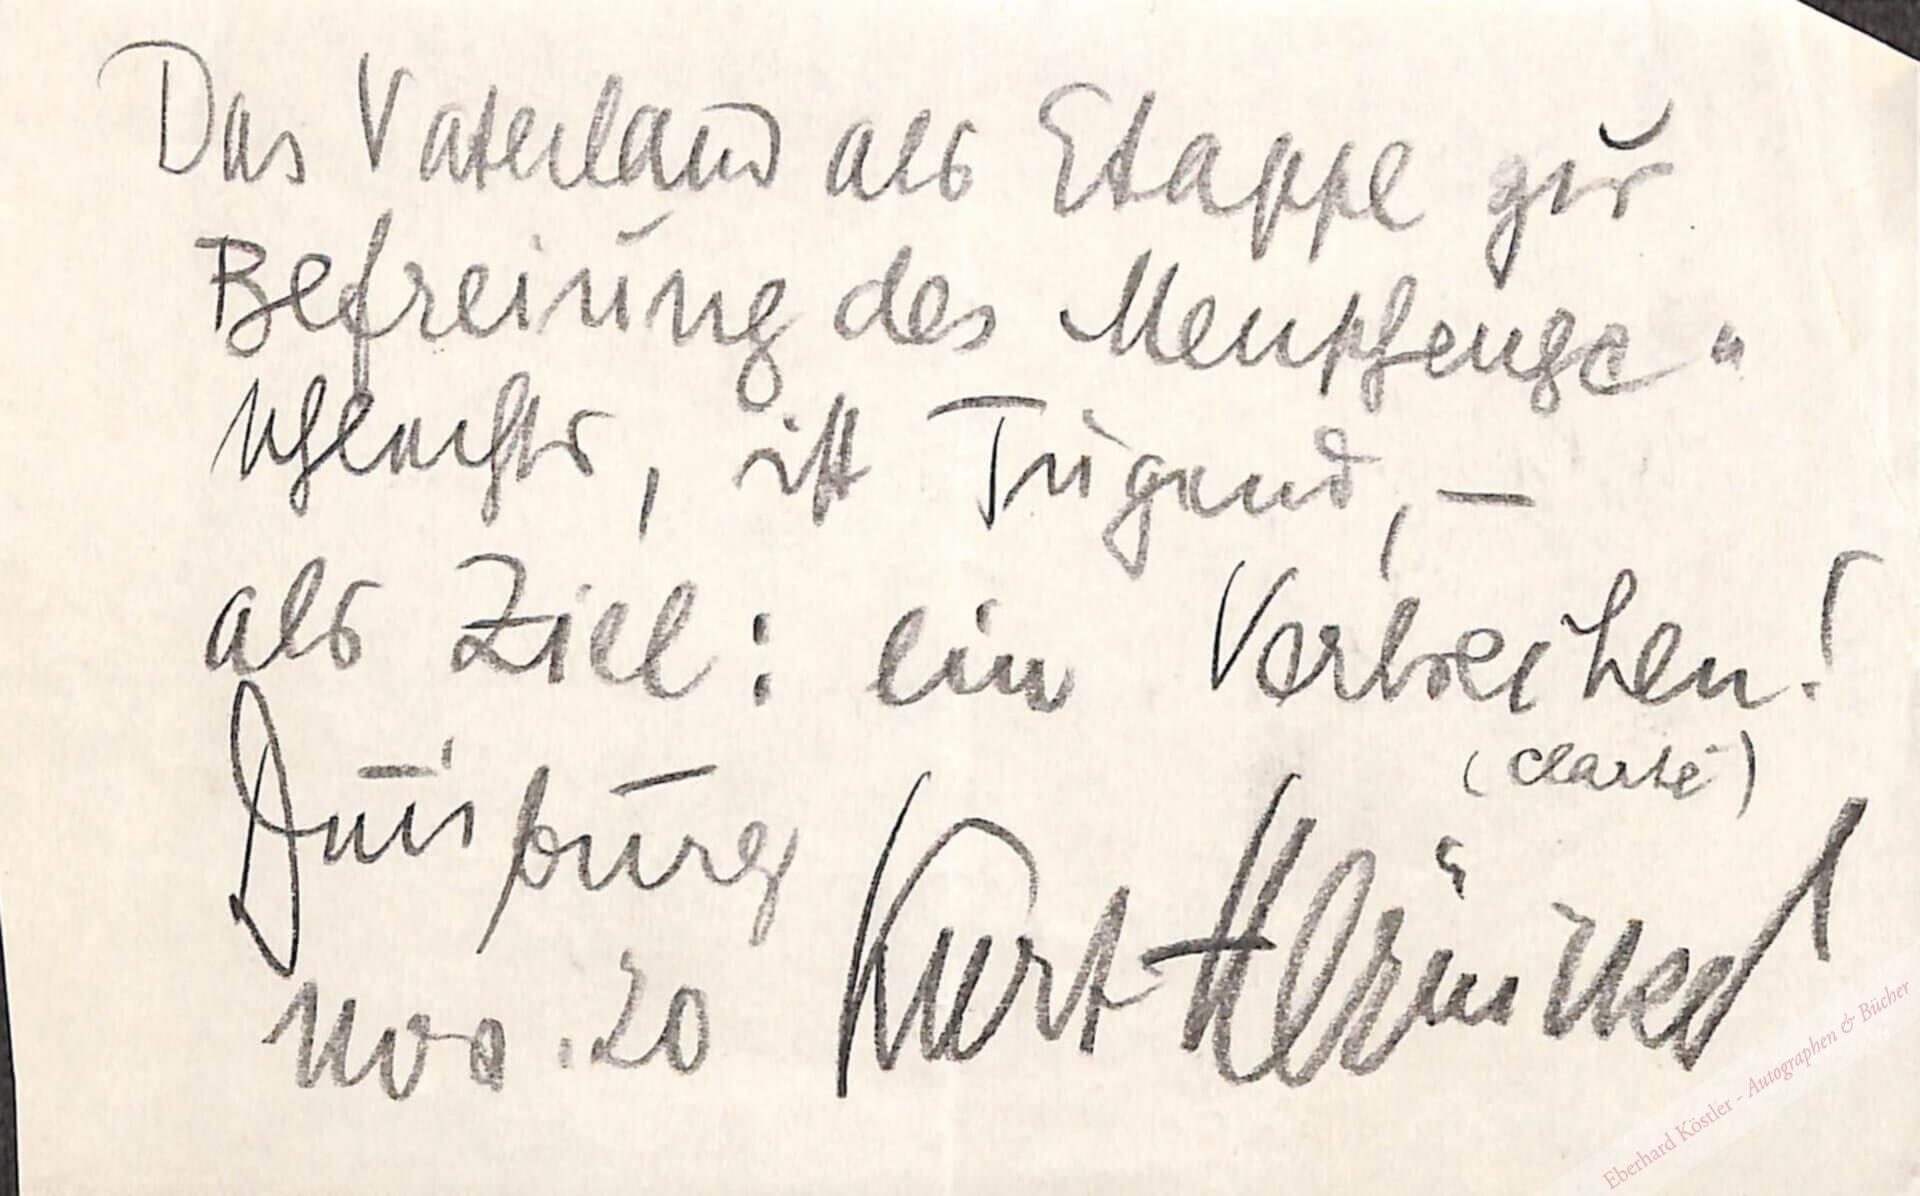 Das Vaterland als Etappe zur
Befreiung des Menschenge-
schlechts, ist Tugend, –
als Ziel: ein Verbrechen!
(Clarté)
Duisburg
Nov. 20 Kurt
Eberhard Köstler - Autographen & Bücher